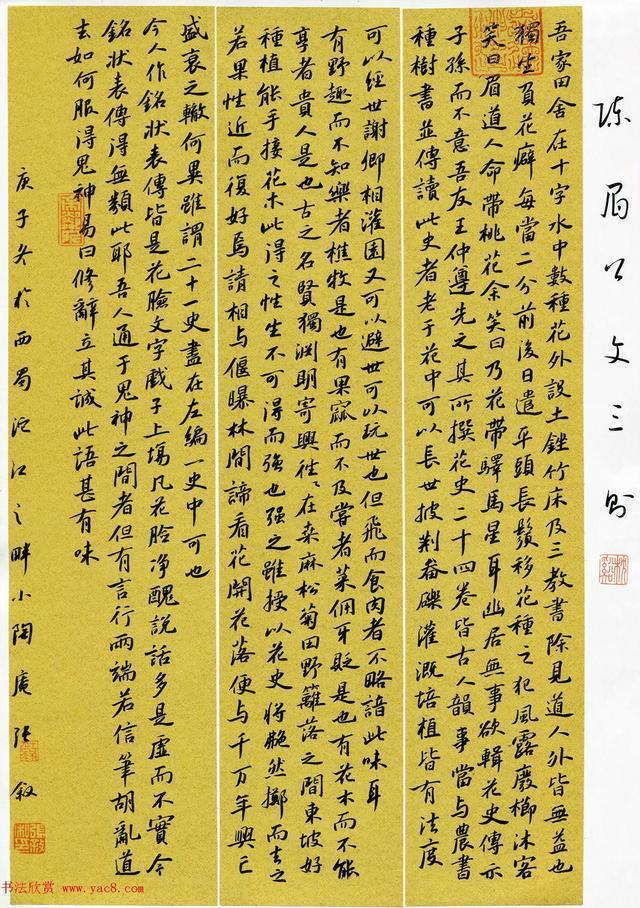 陈眉公文三则
吾家田舍在十字水中數種花外設土銼竹床及三教書除見道人外皆無益也
獨生負花癖每當二分前後日遣平頭長鬚移花種之犯風露廢櫛沐客
笑曰眉道人命帶桃花余笑曰乃花帶驛馬星耳幽居無事欲輯花史傳示
子孫而不意吾友王仲遵先之其所撰花史二十四卷皆古人韻事當与農書
種樹書並傳讀此史者老于花中可以長世披荆畚礫灌溉培植皆有法度
可以經世謝卿相灌園又可以避世可以玩世也但飛而食肉者不略諳此味耳
有野趣而不知樂者樵牧是也有果窳而不及嘗者菜佣牙販是也有花木而不能
享者貴人是也古之名賢獨渊明寄興往往在桑麻松菊田野籬落之間東坡好
種植能手接花木此得之性生不可得而強也强之雖授以花史將艴然擲而去之
若果性近而復好焉請相与偃曝林間諦看花開花落便与千万年興亡
盛衰之轍何異雖謂二十一史盡在左編一史中可也
今人作銘狀表傳皆是花臉文字戲子上場凡花臉净醜説話多是虛而不實今
銘狀表傳得無類此耶吾人通于鬼神之間者但有言行兩端若信筆胡亂道
去如何服得鬼神易曰修辭立其誠此語甚有味
庚子冬於西蜀沱江之畔小陶廣張叙
书法欣赏 www.yac8.com